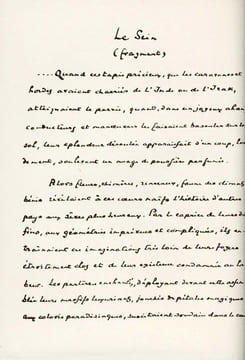 Le Sein
(fragment)
.... Quand ces tapis précieux, que les caravanes et
hordes avaient charriés de l'Inde ou de l'Irak,
atteignaient le parvis, quand, dans un joyeux ahan
conducteurs et manœuvres les faisaient basculer sur le
sol, leur splendeur déroulée apparaissait d'un coup, 
dement, soulevant un nuage de poussière parfumée.
Alors fleurs, chimères, rinceaux, faune des climats
bénis révélaient à ces cœurs naïfs l'histoire d'autres
pays aux êtres plus heureux. Par le caprice de leurs
fins, aux géométries imprévues et compliquées, ils en
traînaient ces imaginations très loin de leurs foyers
étroitement clos et de leur existence condamnée au la
beur. Les parterres enchantés, déployant devant cette
blée leurs massifs luxuriants, jonchés de pétales magiques
aux coloris paradisiaques, suscitaient soudain dans le